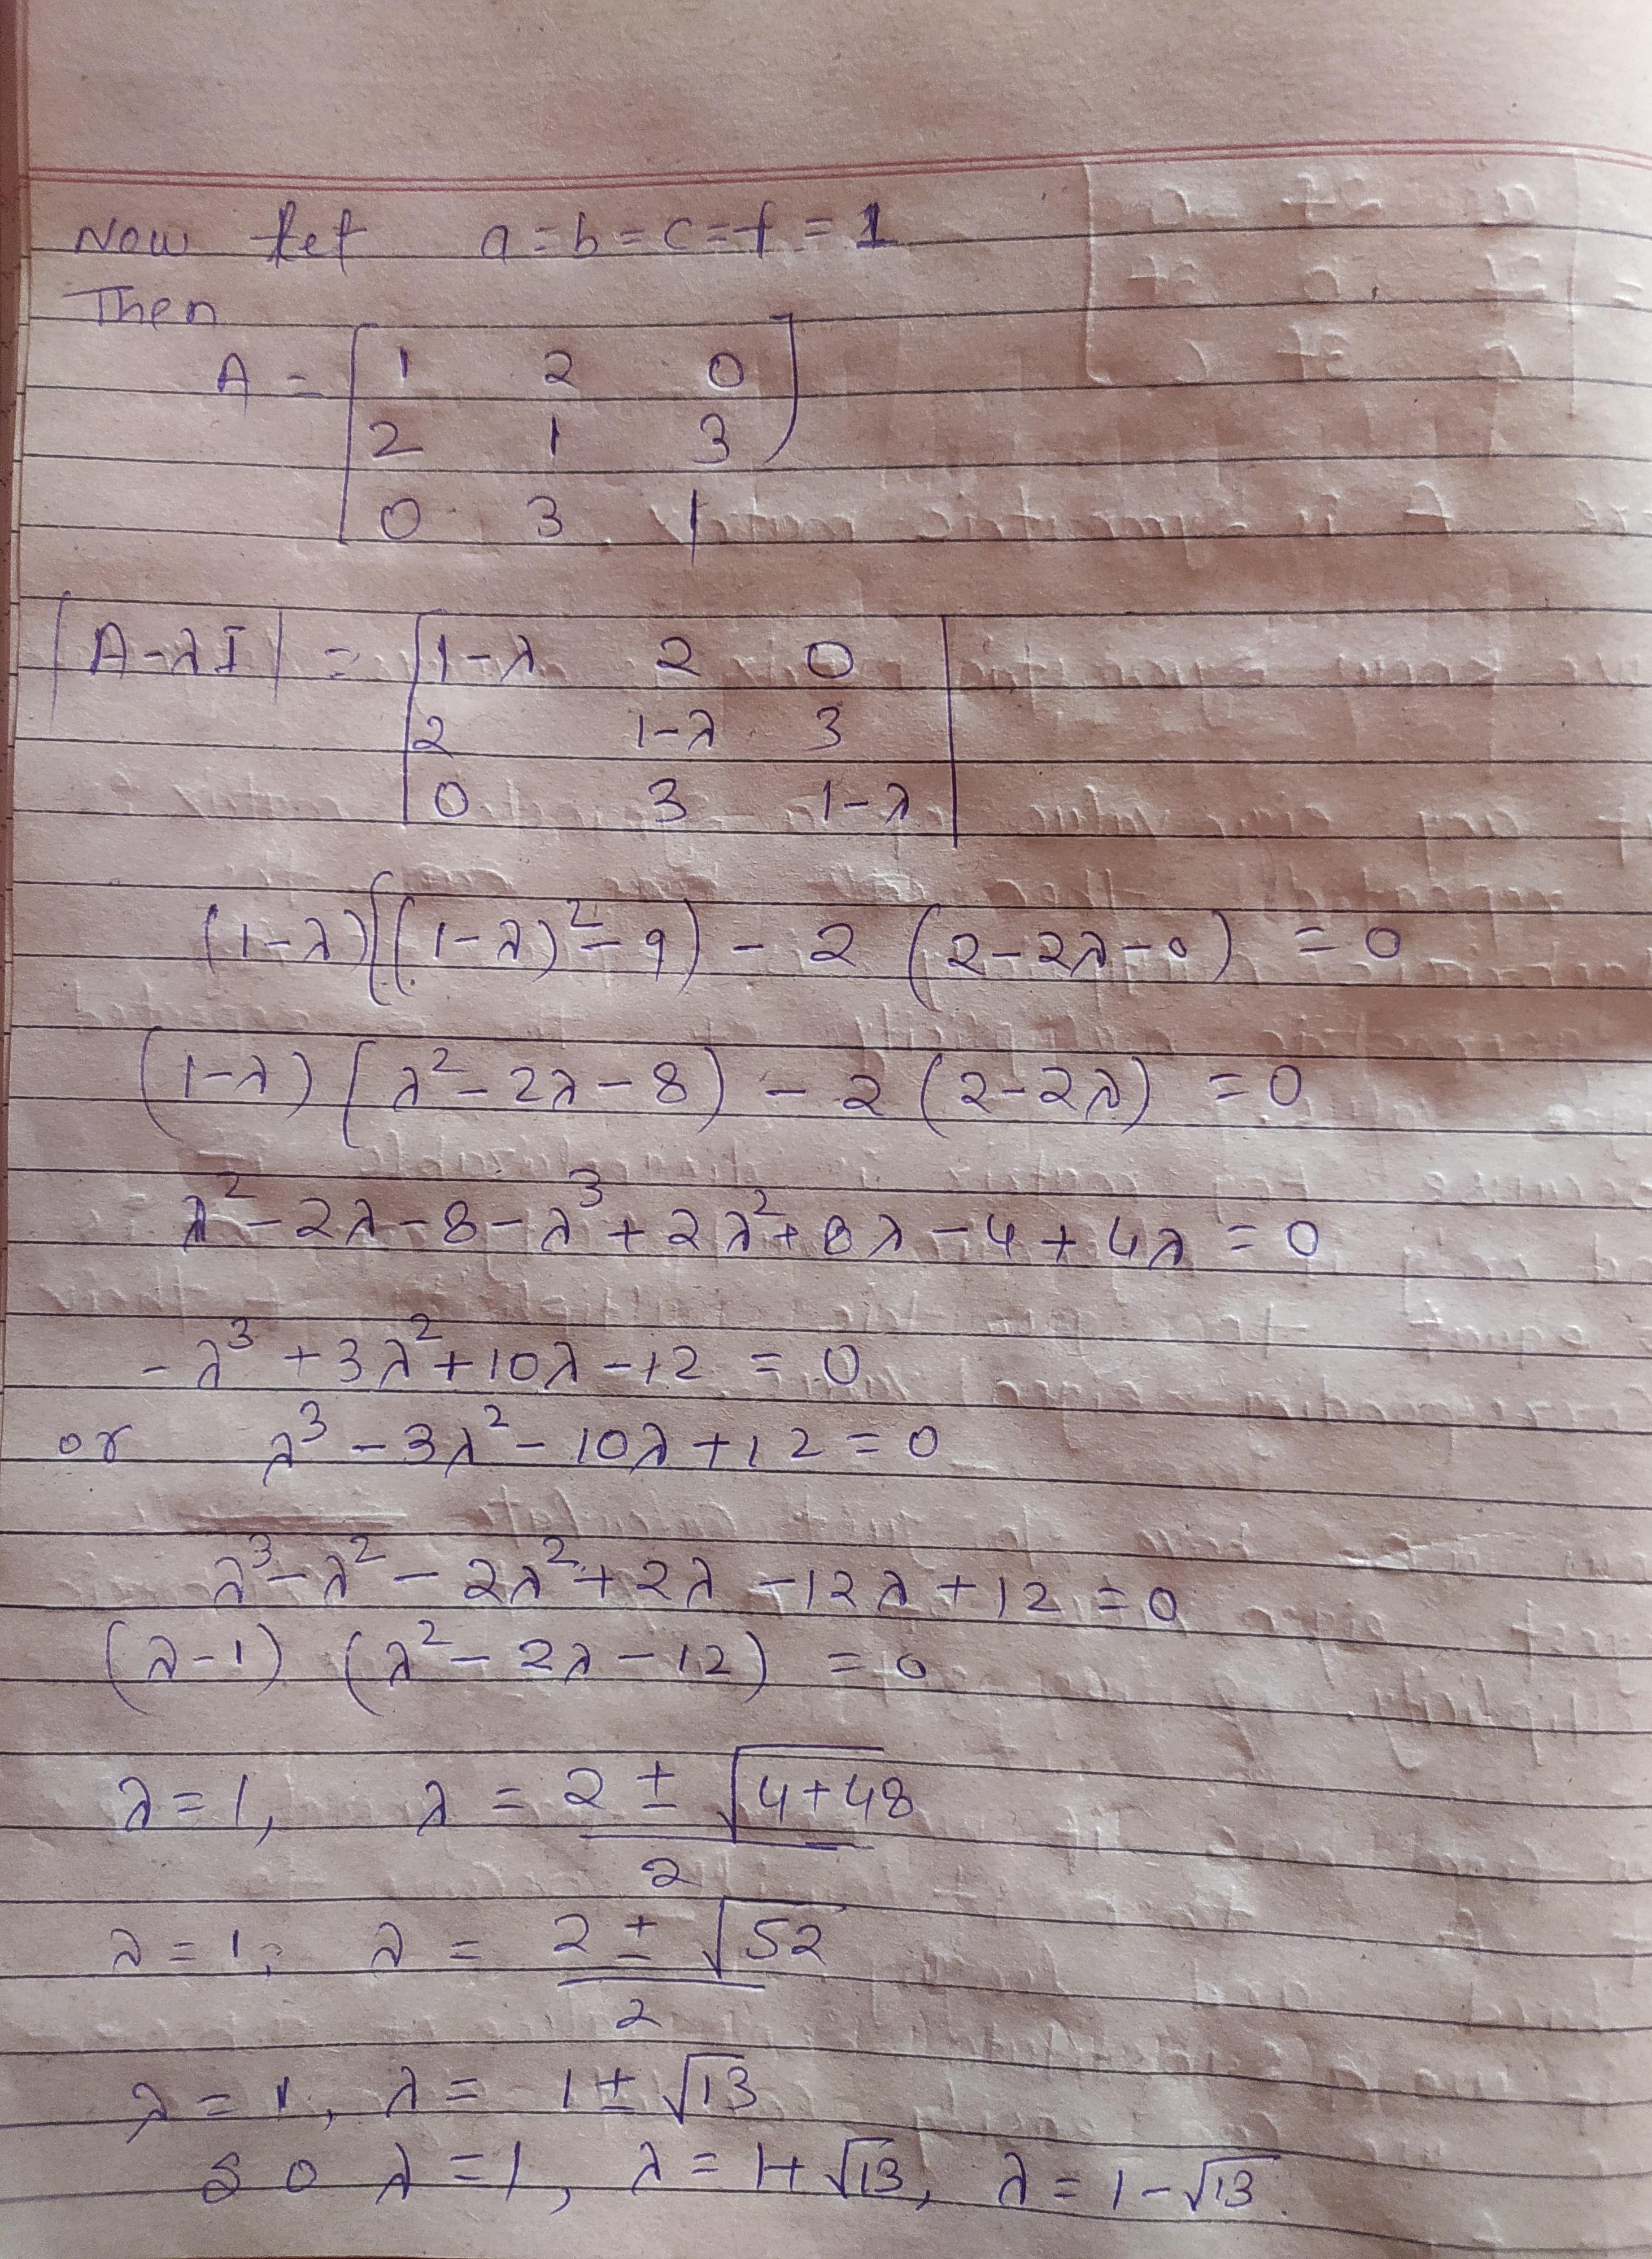 Now let a=b=c=f=1
Then
A = [1 2 0
2 1 3
0 3 1]
|A-λI| = |1-λ 2 0
2 1-λ 3
0 3 1-λ|
(1-λ)[(1-λ)²-9) - 2 (2-2λ-0) =0
(1-λ) [λ²-2λ-8) - 2 (2-2λ) =0
λ²-2λ-8-λ³+2λ²+8λ-4+4λ=0
-λ³+3λ²+10λ-12 =0
or λ³-3λ²-10λ+12=0
λ³-λ²-2λ²+2λ-12λ+12=0
(λ-1) (λ²-2λ-12) =0
λ=1, λ = 2 ± √4+48
2
λ=1, λ = 2 ± √52
2
λ=1, λ= 1±√13
So λ=1, λ=1+√13, λ=1-√13.